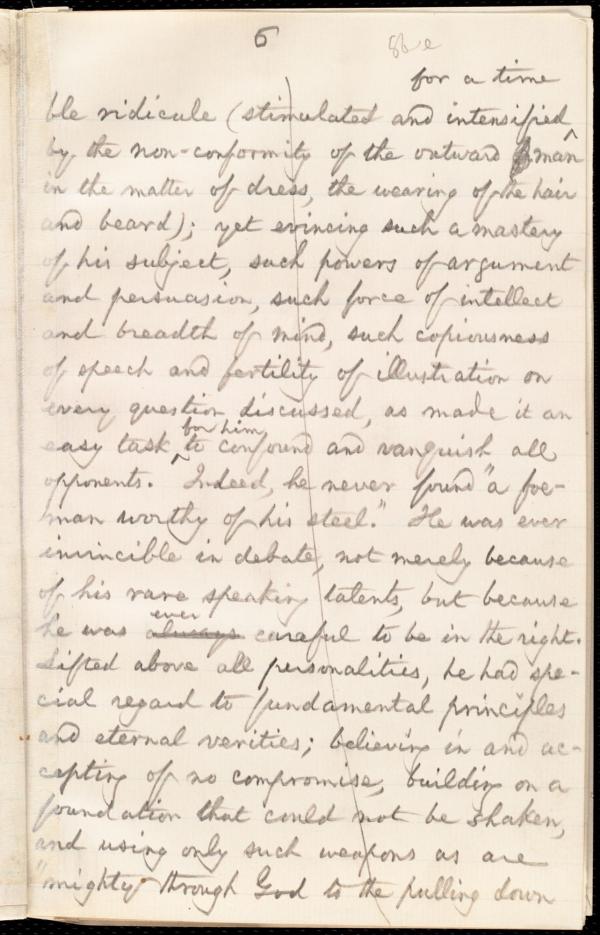 6
for a time
ble ridicule (stimulated and intensified
by the non-conformity of the outward man ^
in the matter of dress, the wearing of the hair
and beard); yet evincing such a mastery
of his subject, such powers of argument
and persuasion, such force of intellect
and breadth of mind, such copiousness
of speech and fertility of illustration on
every question discussed, as made it an
for him
easy task ^ to confound and vanquish all
opponents. Indeed, he never found "a foe-
man worthy of his steel." He was ever
invincible in debate, not merely because
of his rare speaking talents, but because
ever
he was always careful to be in the right.
Lifted above all personalities, he had spe-
cial regard to fundamental principles
and eternal verities; believing in and ac-
cepting of no compromise, building on a
foundation that could not be shaken,
and using only such weapons as are
"mighty through God to the pulling down